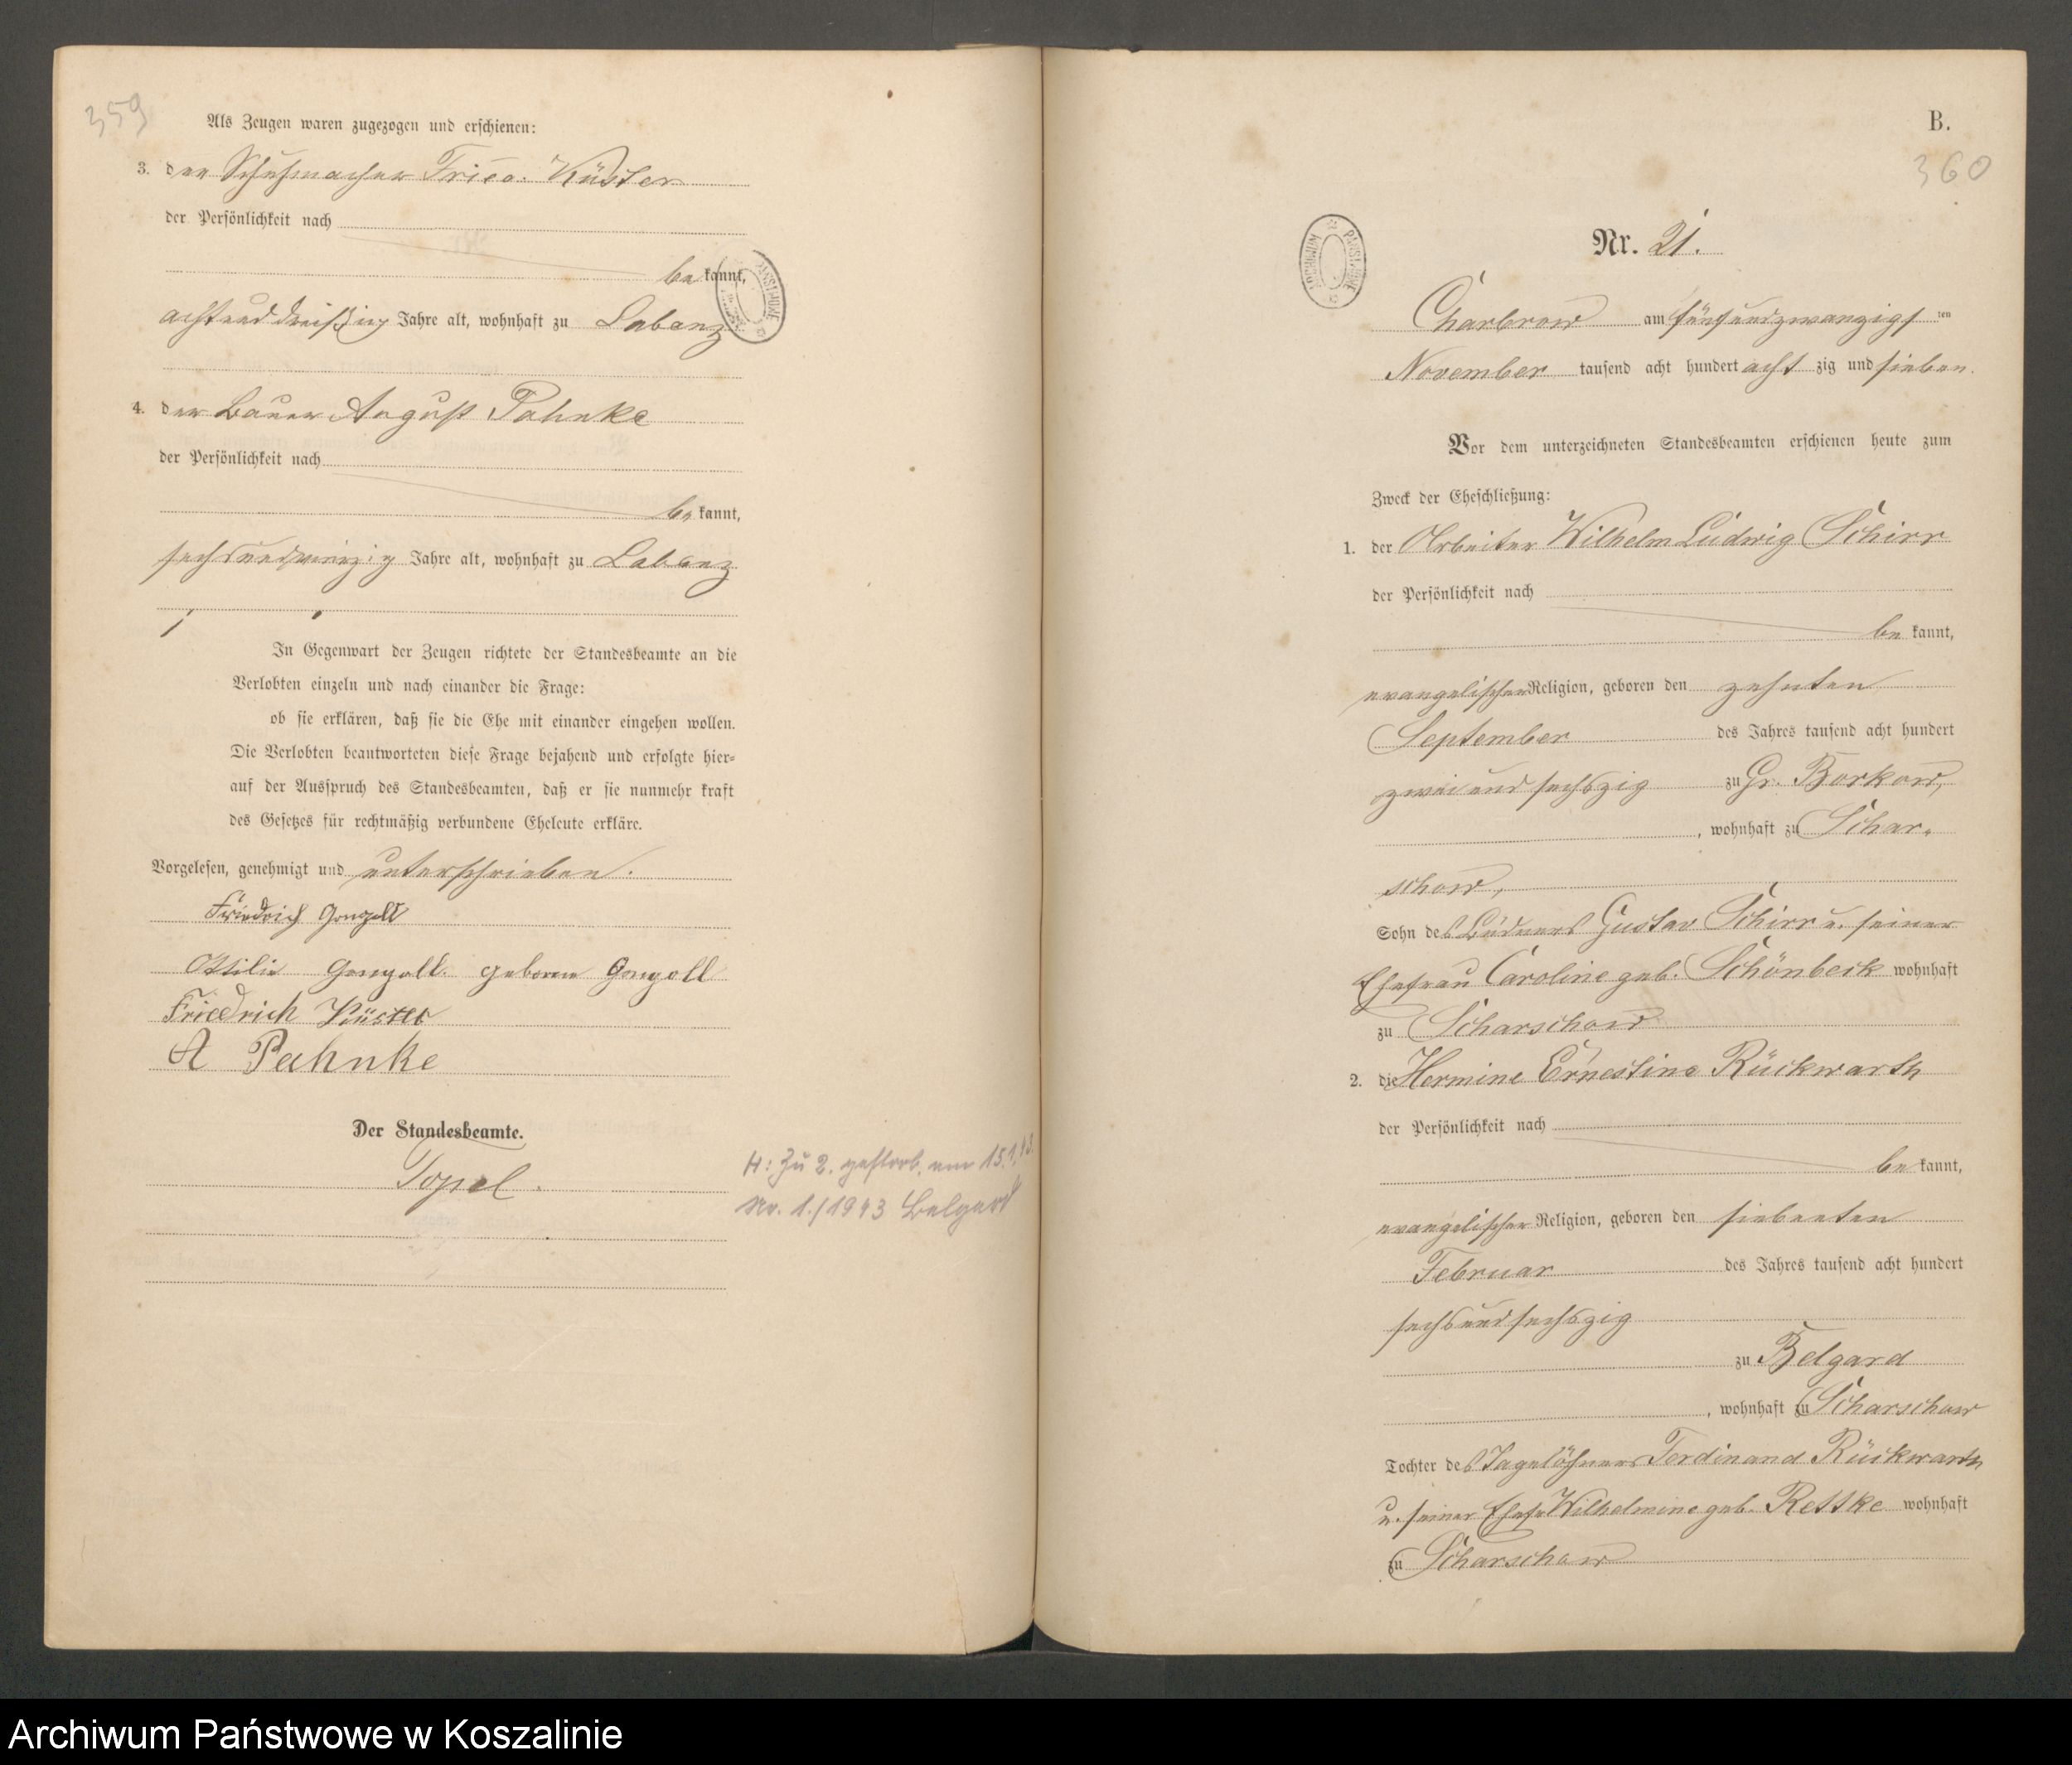 359
Als Zeugen waren zugezogen und erschienen:
3. der Schuhmacher Friedr. Küster
der Persönlichkeit nach
be kannt,
achtunddreißig Jahre alt, wohnhaft zu Labenz
4. der Bauer August Pahnke
der Persönlichkeit nach
be kannt,
sechsundvierzig Jahre alt, wohnhaft zu Labenz
In Gegenwart der Zeugen richtete der Standesbeamte an die
Verlobten einzeln und nach einander die Frage:
ob sie erklären, daß sie die Ehe mit einander eingehen wollen.
Die Verlobten beantworteten diese Frage bejahend und erfolgte hier-
auf der Ausspruch des Standesbeamten, daß er sie nunmehr kraft
des Gesetzes für rechtmäßig verbundene Eheleute erkläre.
Vorgelesen, genehmigt und unterschrieben.
Friedrich Gonzoll
Ottilie Gonzoll geborene Gonzoll
Friedrich Küster
A Pahnke
Der Standesbeamte.
H: Zu 2. gestorb. am 15.1.43.
Nr. 1./1943 Belgard
B.
360
ARCHIWUM PAŃSTWOWE
Nr. 21.
Charbrow am fünfundzwanzigs ten
November tausend acht hundert acht zig und sieben.
Vor dem unterzeichneten Standesbeamten erschienen heute zum
Zweck der Eheschließung:
1. der Arbeiter Wilhelm Ludwig Schirr
der Persönlichkeit nach
be kannt,
evangelischer Religion, geboren den zehnten
September des Jahres tausend acht hundert
zwei und sechszig zu Gr. Borkow,
, wohnhaft zu Schar-
schow,
Sohn des Büdners Gustav Schirr u. seiner
Ehefrau Caroline geb. Schönbeck wohnhaft
zu Scharschow
2. die Hermine Ernestine Rückwarth
der Persönlichkeit nach
be kannt,
evangelischer Religion, geboren den siebenten
Februar des Jahres tausend acht hundert
sechs und sechszig
zu Belgard
, wohnhaft zu Scharschow
Tochter des Tagelöhners Ferdinand Rückwarth
u. seiner Ehefr Wilhelmine geb. Rettke wohnhaft
zu Scharschow
Archiwum Państwowe w Koszalinie